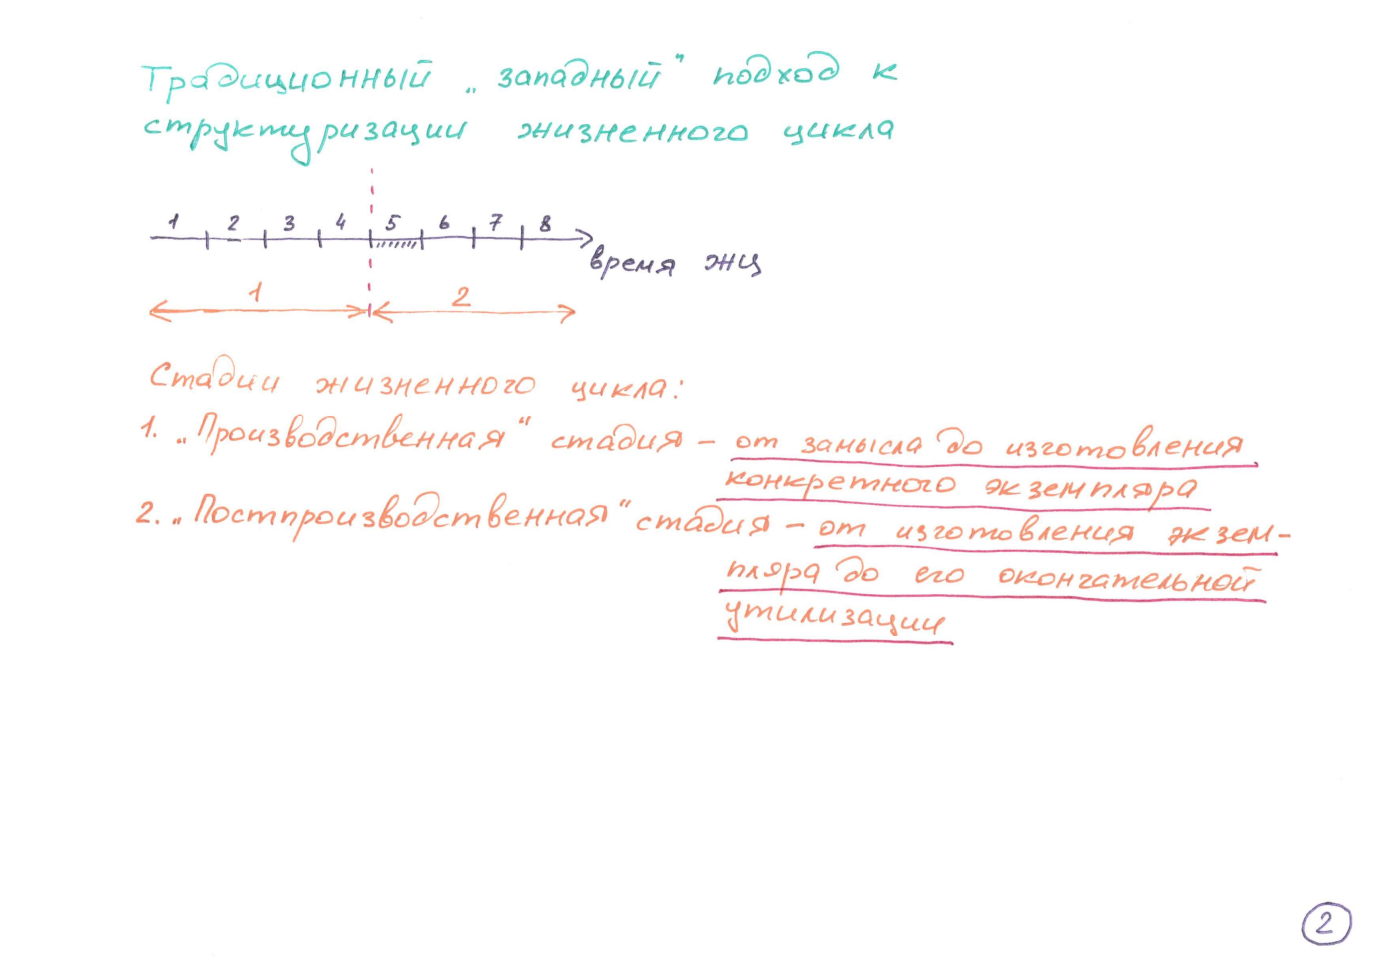 Традиционный „западный" подход к
структуризации жизненного цикла
1 2 3 4 5 6 7 8
время жц
1 2
Стадии жизненного цикла:
1. „Производственная" стадия – от замысла до изготовления
конкретного экземпляра
2. „Постпроизводственная" стадия – от изготовления экзем-
пляра до его окончательной
утилизации
2